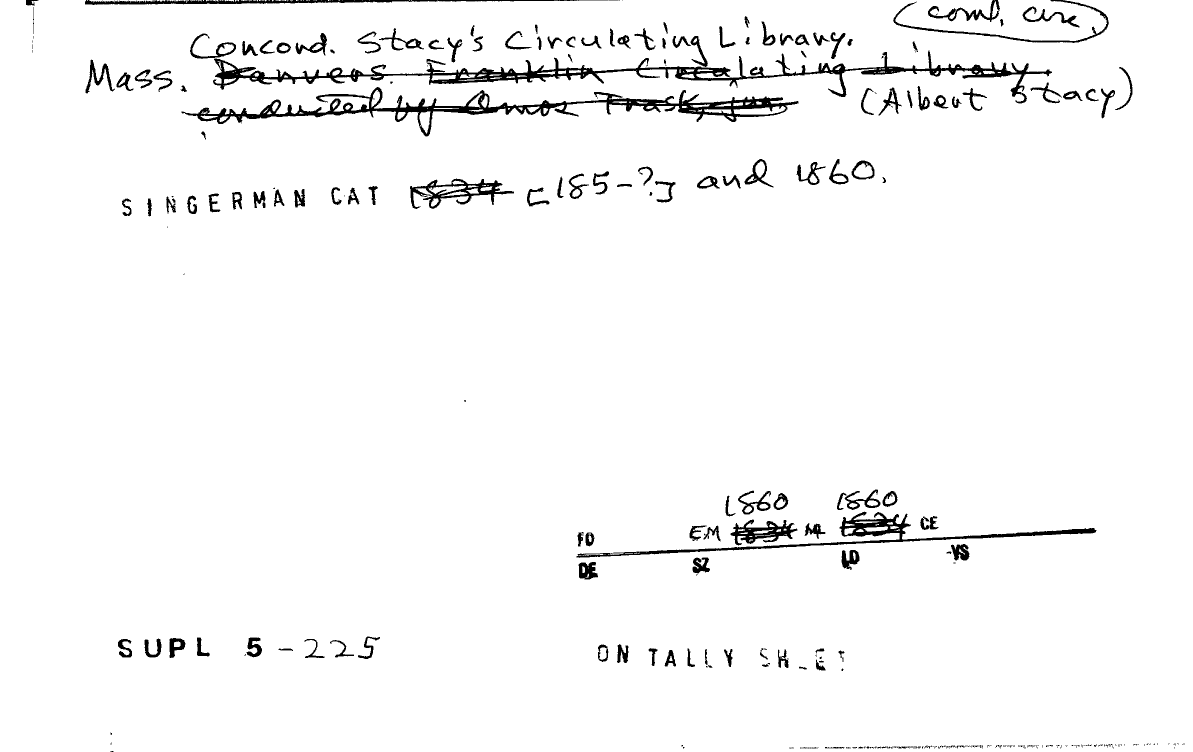 (coml, circ,)
Concord. Stacy's Circulating Library.
Mass. Danvers. Franklin Circulating Library.
conducted by Amos Trask, jun. (Albert Stacy)
SINGERMAN CAT 1834 [185-?] and 1860.
1860 1860
FD EM 1834 ML 1834 CE
DE SZ LD VS
SUPL 5-225
ON TALLY SHEET